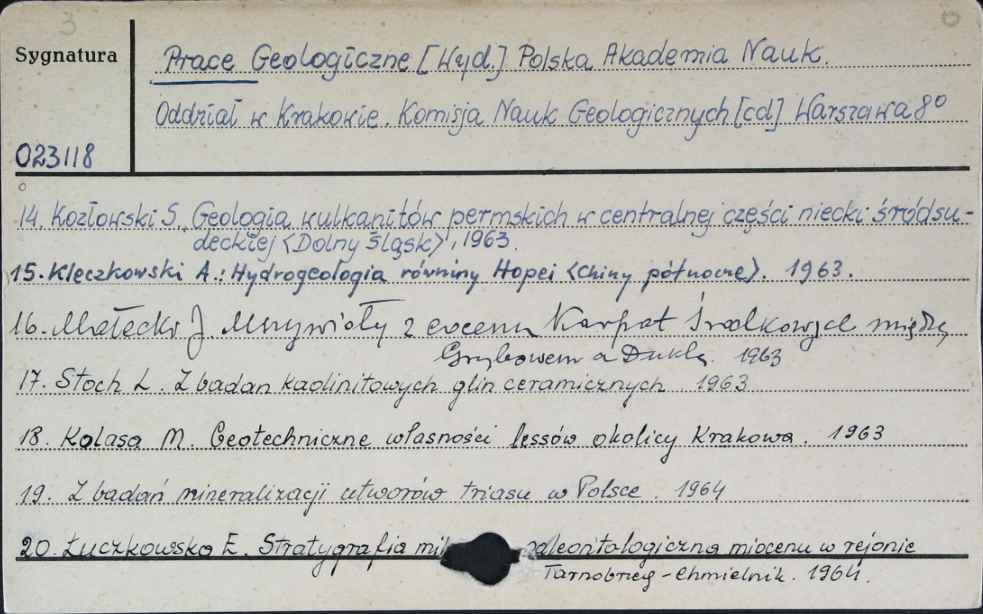 3
Sygnatura
Prace Geologiczne [Wyd.] Polska Akademia Nauk.
Oddział w Krakowie. Komisja Nauk Geologicznych [cd] Warszawa 8°
023118
14. Kozłowski S. Geologia wulkanitów permskich w centralnej części niecki śródsu-
deckiej <Dolny Śląsk>, 1963.
15. Kleczkowski A.: Hydrogeologia równiny Hopei <Chiny północne>. 1963.
16. Małecki J. Mszywioły z eocenu Karpat Środkowych między
Grybowem a Duklą. 1963
17. Stoch L. Z badań kaolinitowych glin ceramicznych 1963
18. Kolasa M. Geotechniczne własności lessów okolicy Krakowa. 1963
19. Z badań mineralizacji utworów triasu w Polsce. 1964
20. Łuczkowska E. Stratygrafia paleontologiczna miocenu w rejonie
Tarnobrzeg - Chmielnik. 1964.